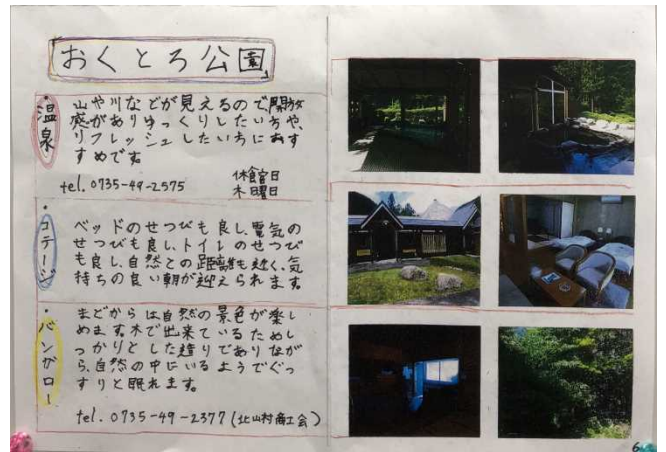 おくとろ公園
・温泉
山や川などが見えるので、開放
感がありゆっくりしたい方や、
リフレッシュしたい方におす
すめです。
tel. 0735-49-2575
休館日
木曜日
・コテージ
ベッドのせつびも良し、電気の
せつびも良し、トイレのせつび
も良し、自然との距離も近く、気
持ちの良い朝が迎えられます
・バンガロー
まどからは自然の景色が楽し
めます。木で出来ているためし
っかりとした造りでありなが
ら、自然の中にいるようでぐっ
すりと眠れます。
tel. 0735-49-2377(北山村商工会)
6